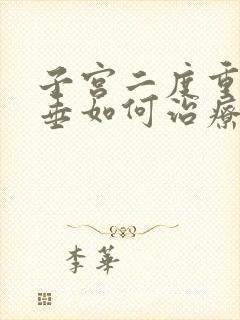 子宫二度重
垂如何治療
李華